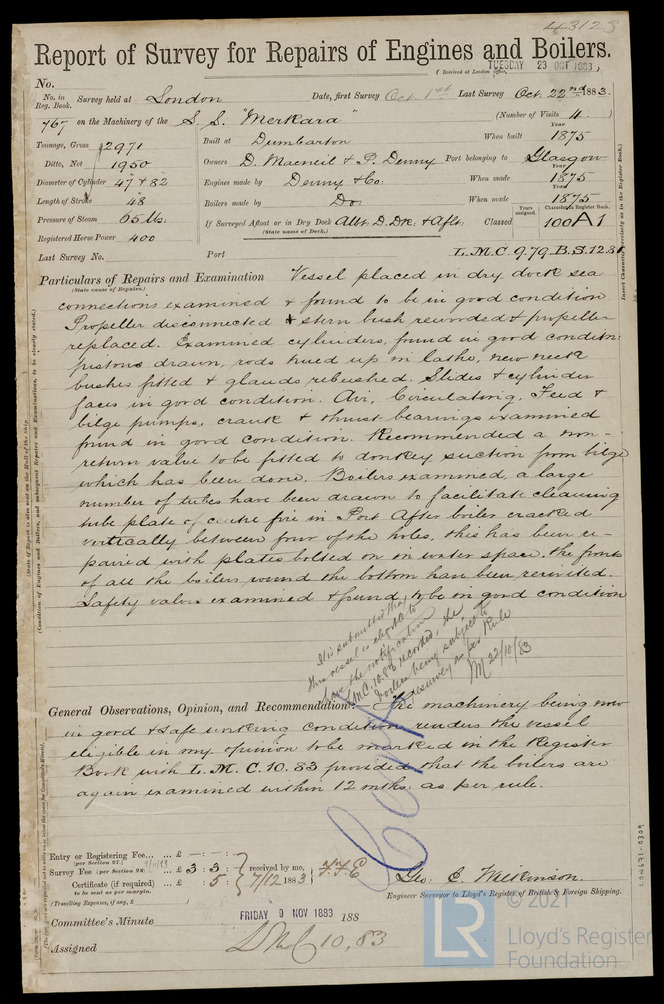 43123
Report of Survey for Repairs of Engines and Boilers.
TUESDAY 23 OCT 1883
(Received at London Office,
No.
No. in Reg. Book. Survey held at London Date, first Survey Oct. 1st Last Survey Oct. 22nd 1883.
767 on the Machinery of the S. S. "Merkara" (Number of Visits 4.)
Tonnage, Gross 2971 Built at Dumbarton When built Year 1875
Ditto, Net 1950 Owners D. Macneil & P. Denny Port belonging to Glasgow
Diameter of Cylinder 47 & 82 Engines made by Denny & Co. When made Year 1875
Length of Stroke 48 Boilers made by Do. When made Year 1875
Pressure of Steam 65 lbs. If Surveyed Afloat or in Dry Dock Albt. D. Dk. & Aflt. Classed 100A1
(State name of Dock.)
Years assigned.
Registered Horse Power 400
Last Survey No. Port L.M.C. 9.79. B.S. 12.81
Particulars of Repairs and Examination Vessel placed in dry dock sea
(State cause of Repairs.)
connections examined & found to be in good condition
Propeller disconnected & stern bush rewooded & propeller
replaced. Examined cylinders, found in good condition.
pistons drawn, rods trued up in lathe, new neck
bushes fitted & glands rebushed. Slides & cylinder
faces in good condition. Air, Circulating, Feed &
bilge pumps, crank & thrust bearings examined
found in good condition. Recommended a non-
return valve to be fitted to donkey suction from bilge
which has been done. Boilers examined, a large
number of tubes have been drawn to facilitate cleaning
tube plate of centre fire in Port After boiler cracked
vertically between four of the holes, this has been re-
paired with plates bolted on in water space. the fronts
of all the boilers round the bottom have been rerivited.
Safety valves examined & found to be in good condition
It is submitted that
this vessel is eligible to
have the notification
L.M.C. 10.83 recorded, the
boilers being subject to
resurvey as per Rule
22/10/83
General Observations, Opinion, and Recommendation:— The machinery being now
in good & safe working condition renders the vessel
eligible in my opinion to be marked in the Register
Book with L.M.C. 10.83 provided that the boilers are
again examined within 12 mths. as per rule.
Entry or Registering Fee... ... £ — : — :
(per Section 27.)
Survey Fee (per Section 28) ... £ 3 : 3 : received by me,
Certificate (if required) ... £ : 5 : 7/12 1883
to be sent as per margin.
(Travelling Expenses, if any, £
Geo. C. Wilkinson.
Engineer Surveyor to Lloyd's Register of British & Foreign Shipping.
Committee's Minute FRIDAY 9 NOV 1883 188
Assigned LMC 10,83
LON671-0309
LR
© 2021
Lloyd's Register
Foundation